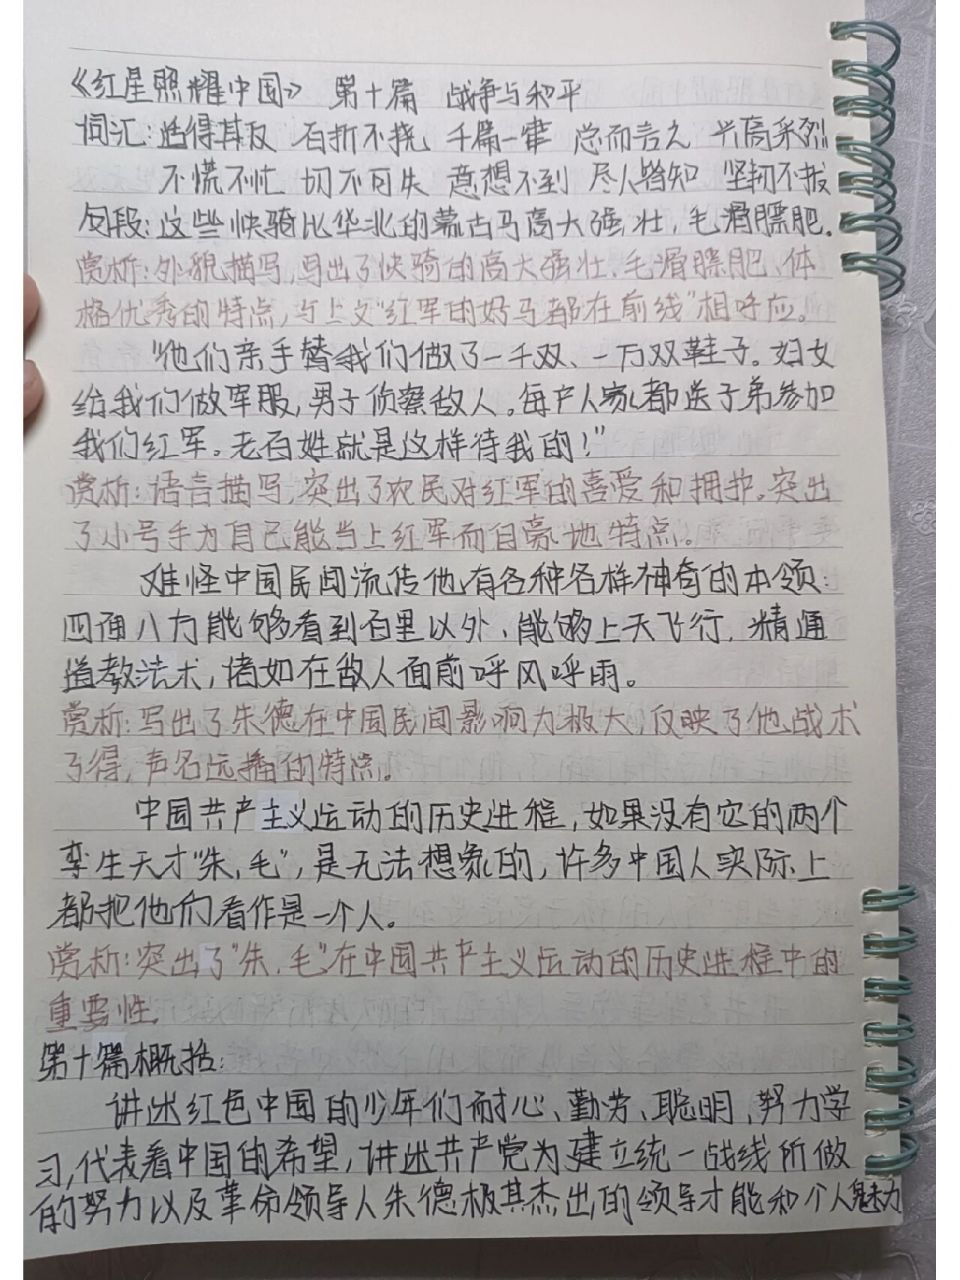 《红星照耀中国》 第十篇 战争与和平
词汇：适得其反 百折不挠 千篇一律 总而言之 兴高采烈
不慌不忙 切不可失 意想不到 尽人皆知 坚韧不拔
句段：这些快骑比华北的蒙古马高大强壮，毛滑膘肥。
赏析：外貌描写，写出了快骑的高大强壮、毛滑膘肥、体
格优秀的特点，与上文“红军的好马都在前线”相呼应。
“他们亲手替我们做了一千双、一万双鞋子。妇女
给我们做军服，男子侦察敌人。每户人家都送子弟参加
我们红军。老百姓就是这样待我的！”
赏析：语言描写，突出了农民对红军的喜爱和拥护。突出
了小号手为自己能当上红军而自豪地特点。
难怪中国民间流传他有各种各样神奇的本领：
四面八方能够看到百里以外、能够上天飞行，精通
道教法术，诸如在敌人面前呼风呼雨。
赏析：写出了朱德在中国民间影响力极大，反映了他战术
了得，声名远播的特点。
中国共产主义运动的历史进程，如果没有它的两个
孪生天才“朱、毛”，是无法想象的，许多中国人实际上
都把他们看作是一个人。
赏析：突出了“朱、毛”在中国共产主义运动的历史进程中的
重要性。
第十篇概括：
讲述红色中国的少年们耐心、勤劳、聪明、努力学
习，代表着中国的希望，讲述共产党为建立统一战线所做
的努力以及革命领导人朱德极其杰出的领导才能和个人魅力